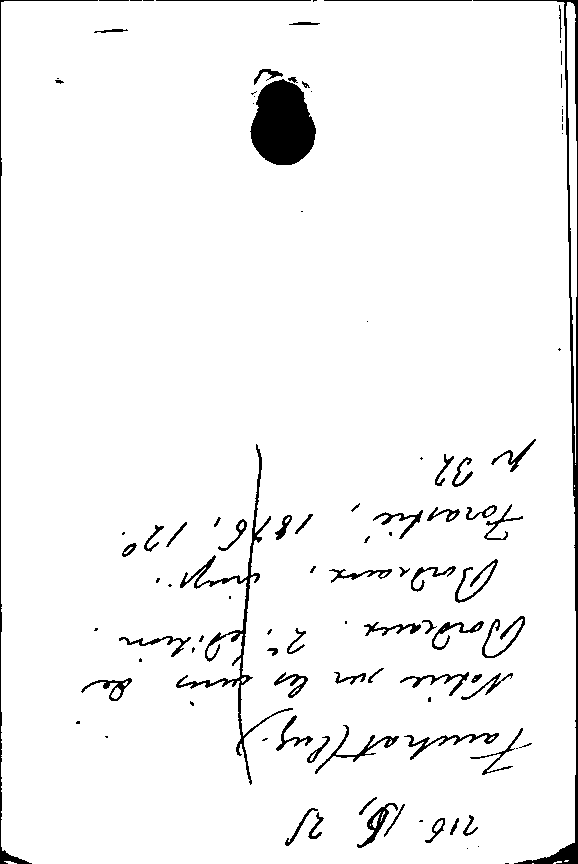 216. 15, 21
Fauchat (Eug.)
Notice sur les vins de
Bordeaux. 2e édition.
Bordeaux, impr.
Forastié, 1876, 12°.
p. 32.